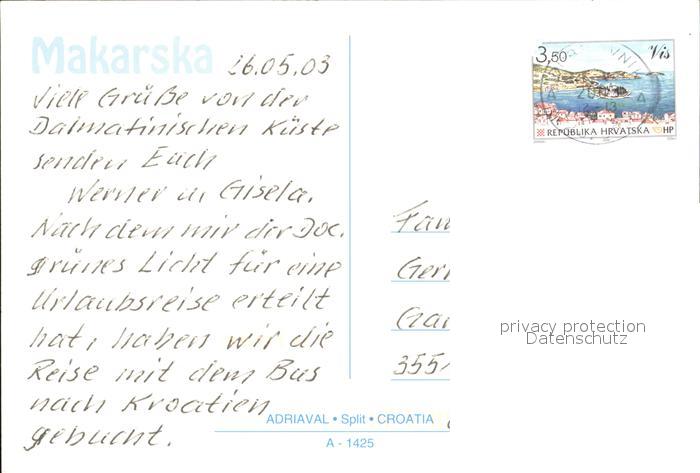 Makarska 26.05.03
Viele Grüße von der
Dalmatinischen Küste
senden Euch
Werner u. Gisela.
Nach dem mir der Doc.
grünes Licht für eine
Urlaubsreise erteilt
hat, haben wir die
Reise mit dem Bus
nach Kroatien
gebucht.
3,50 Vis
REPUBLIKA HRVATSKA HP
Fam
Gerh
Gar
355
privacy protection
Datenschutz
ADRIAVAL • Split • CROATIA
A - 1425